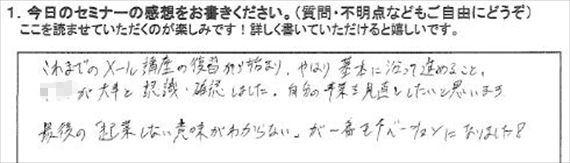 1. 今日のセミナーの感想をお書きください。(質問・不明点などもご自由にどうぞ)
ここを読ませていただくのが楽しみです!詳しく書いていただけると嬉しいです。
これまでのメール講座の復習から始まり、やはり基本に沿って進めること。
が大事と認識・確認しました。自分の事業を見直をしたいと思います
最後の「起業しない意味がわからない」が一番モチベーションになりました!